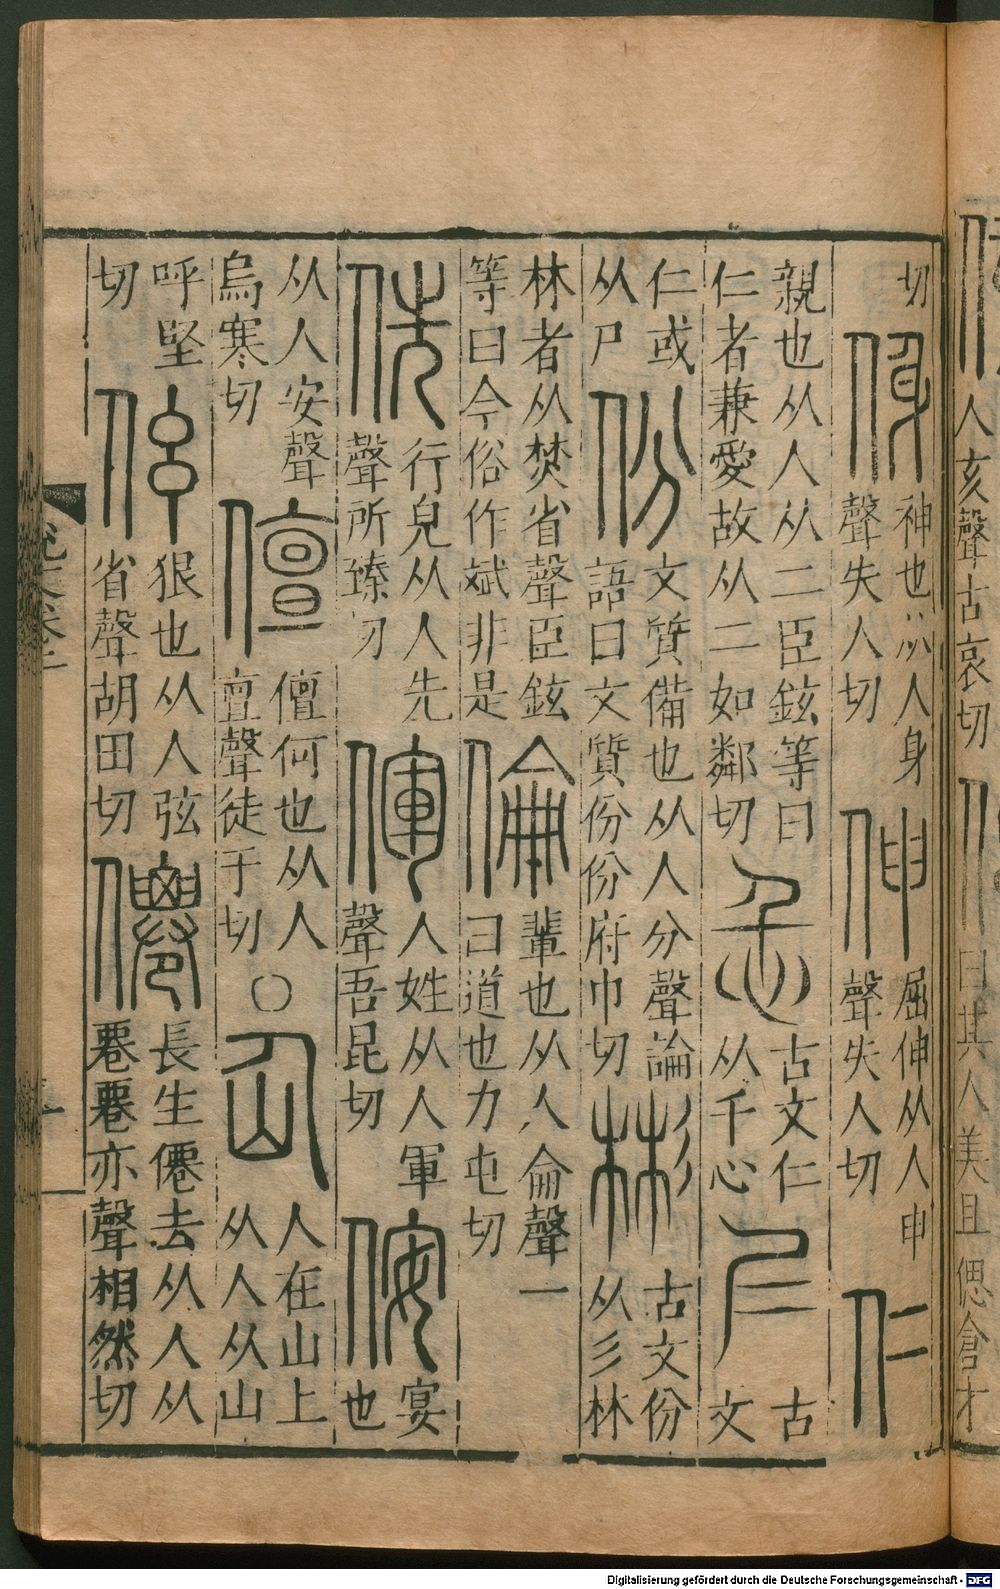 人亥聲古哀切
曰其人美且偲倉才
切
㑗
神也从人身
聲失人切
伸
屈伸从人申
聲失人切
仁
親也从人从二臣鉉等曰
仁者兼愛故从二如鄰切
忎
古文仁
从千心
𡰥
古
文
仁或
从尸
份
文質備也从人分聲論
語曰文質份份府巾切
彬
古文份
从彡林
林者从焚省聲臣鉉
等曰今俗作斌非是
倫
輩也从人侖聲一
曰道也力屯切
侁
行皃从人先
聲所臻切
㑮
人姓从人軍
聲吾昆切
侒
宴
也
从人安聲
烏寒切
儃
儃何也从人
亶聲徒于切
○
仚
人在山上
从人从山
呼堅
切
伭
狠也从人弦
省聲胡田切
僊
長生僊去从人从
䙴䙴亦聲相然切
Digitalisierung gefördert durch die Deutsche Forschungsgemeinschaft - DFG